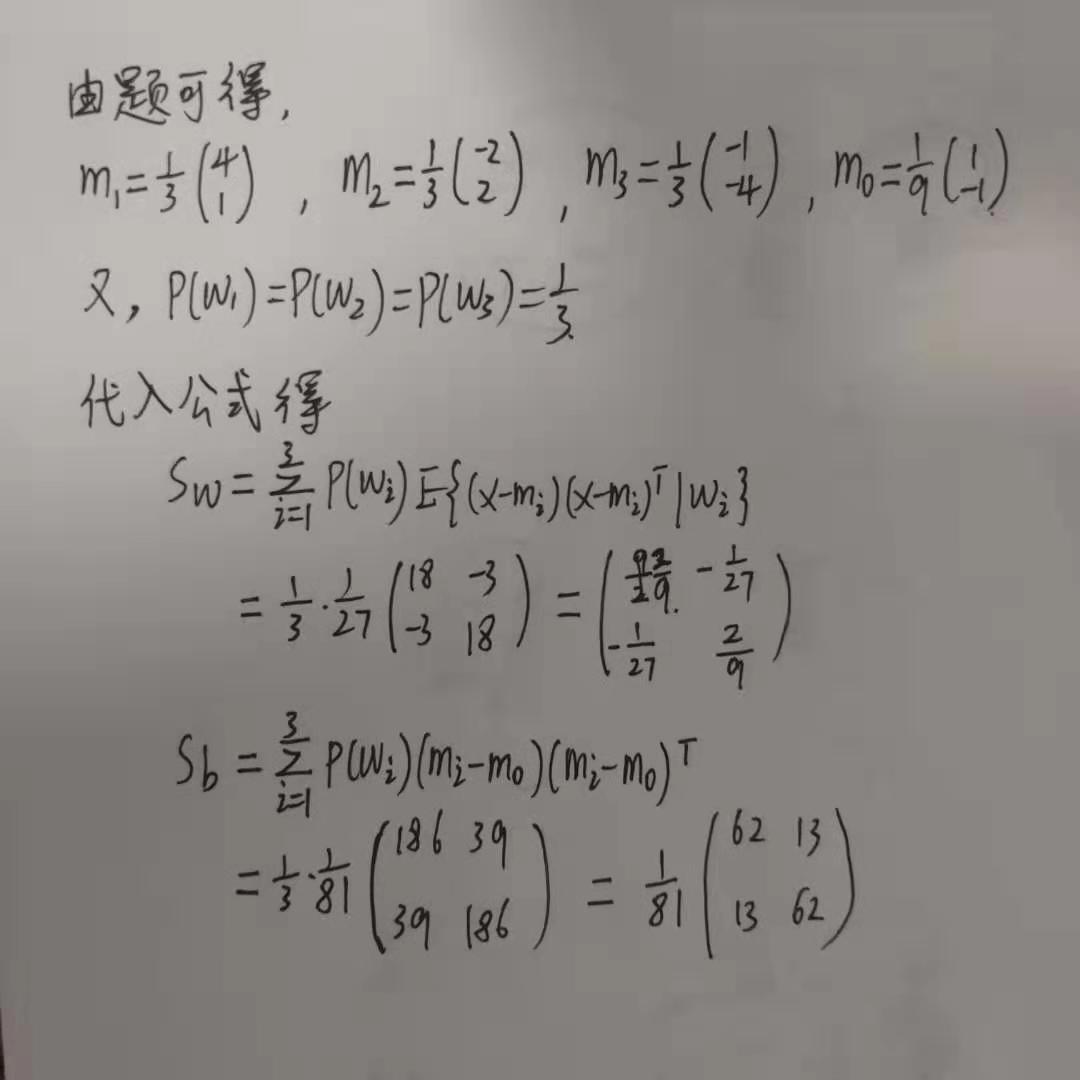 由题可得,
m₁=1/3(4 1), m₂=1/3(-2 2), m₃=1/3(-1 -4), m₀=1/9(1 -1)
又, P(w₁)=P(w₂)=P(w₃)=1/3.
代入公式得
Sw=∑_{i=1}^{3} P(wᵢ)E{(x-mᵢ)(x-mᵢ)ᵀ|wᵢ}
=1/3·1/27(18 -3 -3 18)=(2/9. -1/27 -1/27 2/9)
Sb=∑_{i=1}^{3} P(wᵢ)(mᵢ-m₀)(mᵢ-m₀)ᵀ
=1/3·1/81(186 39 39 186)=1/81(62 13 13 62)